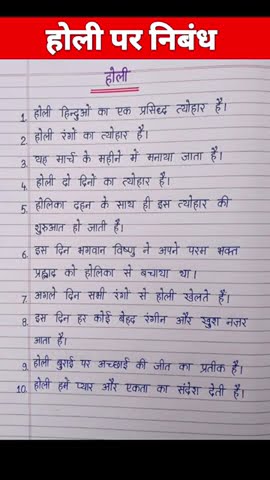 होली पर निबंध
होली
1. होली हिन्दुओं का एक प्रसिद्ध त्योहार है।
2. होली रंगो का त्योहार है।
3. यह मार्च के महीने में मनाया जाता है।
4. होली दो दिनों का त्योहार है।
5. होलिका दहन के साथ ही इस त्योहार की
शुरुआत हो जाती है।
6. इस दिन भगवान विष्णु ने अपने परम भक्त
प्रह्लाद को होलिका से बचाया था।
7. अगले दिन सभी रंगो से होली खेलते हैं।
8. इस दिन हर कोई बेहद रंगीन और खुश नज़र
आता है।
9. होली बुराई पर अच्छाई की जीत का प्रतीक है।
10. होली हमें प्यार और एकता का संदेश देती है।